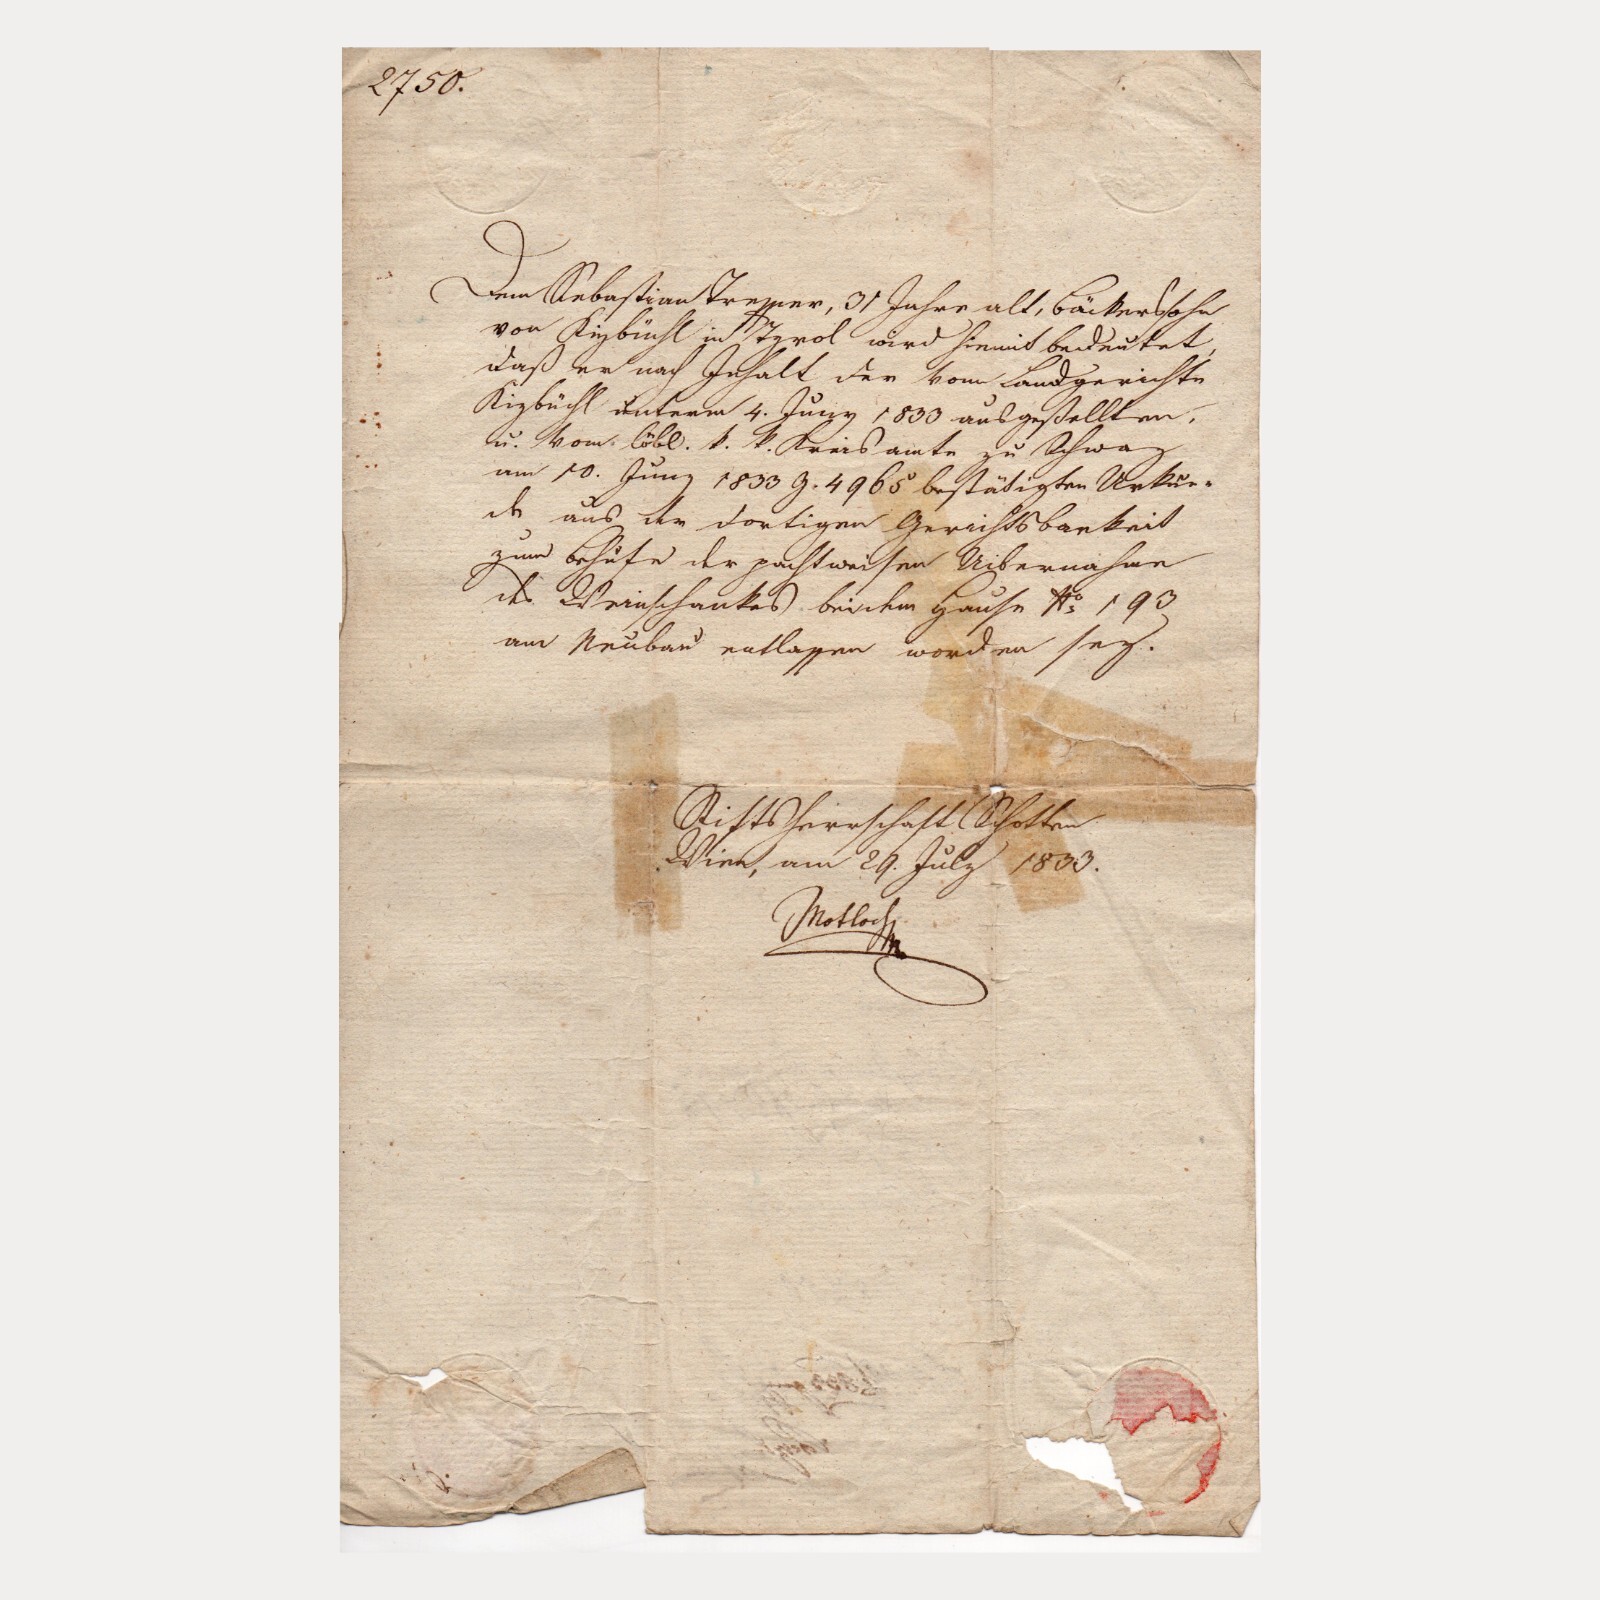 2750.
Dem Sebastian Tremer, 31 Jahre alt, Bäckerssohn
von Kizbüchl in Tyrol wird hiemit bedeutet,
daß er nach Inhalt der vom Landgerichte
Kizbüchl unterm 4. Juny 1833 ausgestellten,
u. vom löbl. k. k. Kreisamte zu Schwaz
am 10. Juny 1833 Z. 4965 bestätigten Urkun=
de aus der dortigen Gerichtsbarkeit
zum Behufe der pachtweisen Uibernahme
des Weinschankes bei dem Hause No. 193
am Neubau entlassen worden sey.
Stiftsherrschaft Schotten
Wien, am 29. July 1833.
Motloch